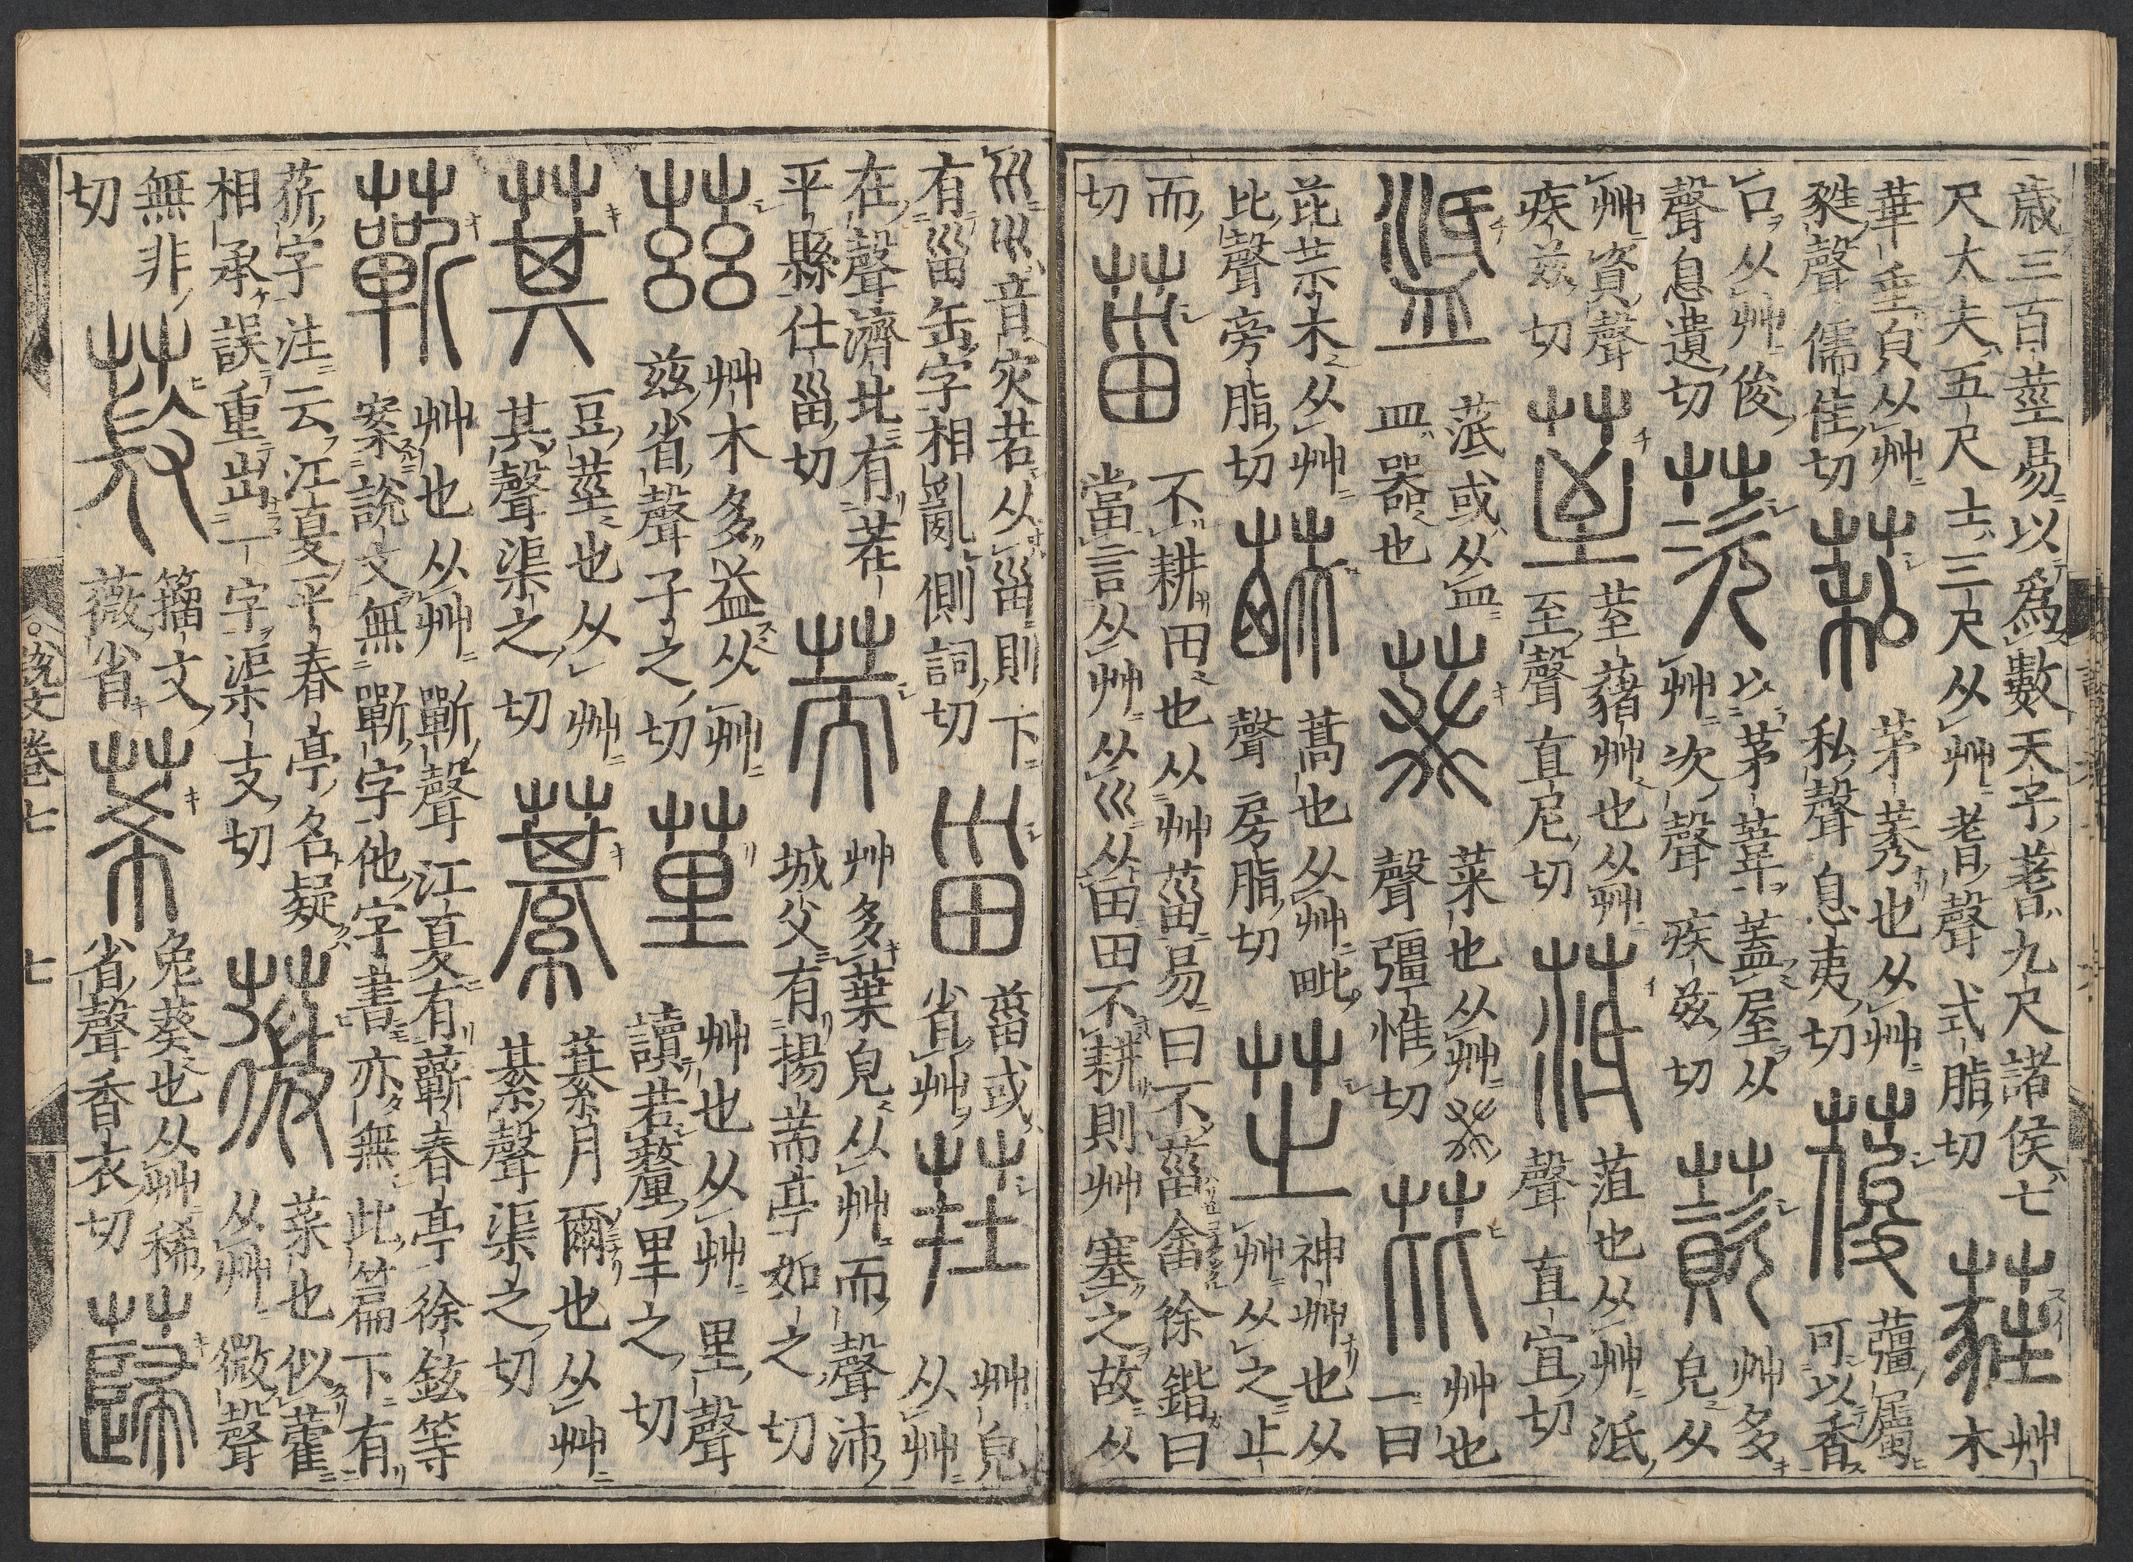 歲三百莖易以爲數天子蓍九尺諸侯七
尺大夫五尺士三尺从艸耆聲 式脂切
蕤 艸
木
華垂皃从艸
甤聲 儒隹切
茅莠也从艸
私聲 息夷切
葰 薑屬
可以香
口从艸俊
聲息遺切
茨 以茅葦蓋屋从
艸次聲 疾兹切
薋 艸多
皃从
艸資聲
疾兹切
荎 荎藸艸也从艸
至聲直尼切
菹也从艸泜
聲 直宜切
或从皿
皿器也
葵 菜也从艸癸
聲彊惟切
芘 艸也
一曰
芘茮木从艸
比聲房脂切
蒿也从艸毗
聲 房脂切
芝 神艸也从
艸从之 止
而
切
菑 不耕田也从艸甾易曰不菑畬徐鍇曰
當言从艸从巛从田田不耕則艸塞之故从
巛巛音灾若从甾則下
有甾缶字相亂側詞切
甾 菑或
省艸
茬 艸皃
从艸
在聲濟北有茬
平縣仕甾切
荋 艸多葉皃从艸而聲沛
城父有揚荋亭如之切
茲 艸木多益从艸
兹省聲子之切
荲 艸也从艸里聲
讀若釐里之切
萁 豆莖也从艸
其聲渠之切
藄 綦月爾也从艸
綦聲渠之切
蘄 艸也从艸𣂪聲江夏有蘄春亭徐鉉等
案說文無𣂪字他字書亦無此篇下有
菥字注云江夏平春亭名疑
相承誤重出一字渠支切
薇 菜也似藿
从艸微聲
無非
切
籀文
薇省
莃 兔葵也从艸稀
省聲香衣切
蘬
説文卷七 七